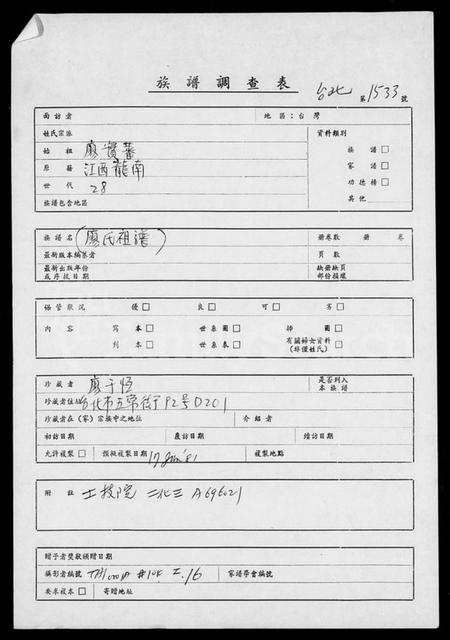 族譜調查表
台北 第1533號
面訪者 地區：台灣
姓氏宗派 資料類別
始祖 廖實蕃 族譜□
原籍 江西龍南 家譜□
世代 28 功德榜□
族譜包含地區 其他
族譜名(廖氏祖譜) 冊卷數 冊 卷
最新版本編纂者 頁數
最新出版年份 缺冊缺頁
或序拔日期 部份損壞
保管狀況 優□ 良□ 可□ 劣□
內容 寫本□ 世系圖□ 師圖□
刊本□ 世系表□ 有關婦女資料□
(非僅姓氏)
珍藏者 廖于恆 是否列入
本族譜
珍藏者住址 台北市五常街 P2号D201
珍藏者在(家)宗族中之地位 介紹者
初訪日期 覆訪日期 續訪日期
允許複製□ 預擬複製日期 17 Jan '81 複製地點
附註 工技院 二北三 A696021
贈予者獎狀頒贈日期
攝影者編號 #104 I.16 家譜學會編號
要求複本□ 寄贈地址